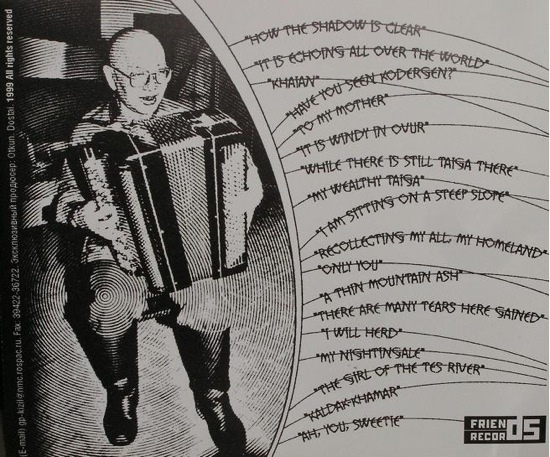 (E-mail) gp-kizil@nmc.rospac.ru. Fax 39422-36722. Эксклюзивный продюсер: Otkun. Dostai. 1999 All rights reserved
"HOW THE SHADOW IS CLEAR"
"IT IS ECHOING ALL OVER THE WORLD"
"KHAIAN"
"HAVE YOU SEEN KODERGEN?"
"TO MY MOTHER"
"IT IS WINDY IN OVUR"
"WHILE THERE IS STILL TAIGA THERE"
"MY WEALTHY TAIGA"
"I AM SITTING ON A STEEP SLOPE"
"RECOLLECTING MY ALL, MY HOMELAND"
"ONLY YOU"
"A THIN MOUNTAIN ASH"
"THERE ARE MANY TEARS HERE GAINED"
"I WILL HERD"
"MY NIGHTINGALE"
"THE GIRL OF THE TES RIVER"
"KALDAK-KHAMAR"
"AH, YOU, SWEETIE"
FRIENDS
RECORDS